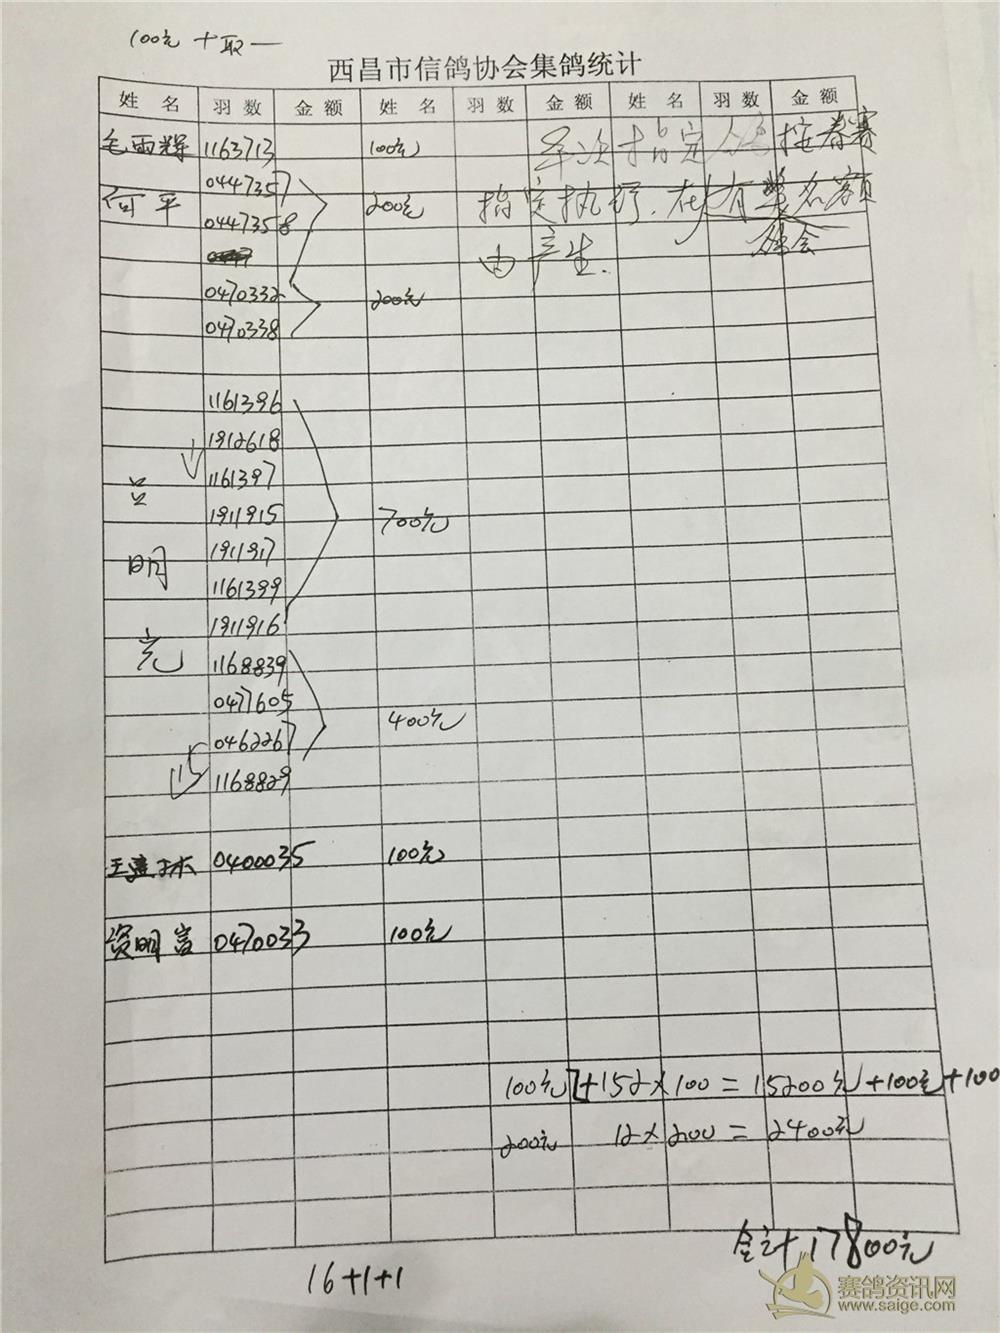 100元 十取一
西昌市信鸽协会集鸽统计
姓 名 羽 数 金 额 姓 名 羽 数 金 额 姓 名 羽 数 金 额
毛雨辉 1163713 100元 指定 按春赛
何平 0447357 200元 指定执行.在有奖名额
0447358
由 产生.
0470332 200元
0470338
1161396
1912618
1161397
吕 1911915 700元
明 1911917
1161399
1911916
亮 1168839
0477605
0462267 400元
1168829
0400035 100元
资明富 0470033 100元
100元 +152×100=15200元+100元+100
200元 12×200=2400元
合计 17800元
16+1+1
赛鸽资讯网
www.saige.com